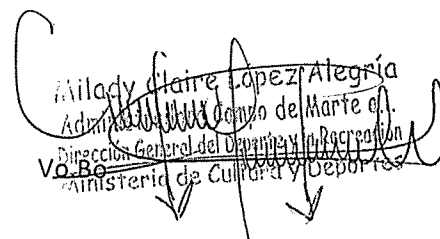 Milady Claire López Alegría
Campo de Marte a.i.
Dirección General del Deporte y la Recreación
Vo.Bo
Ministerio de Cultura y Deportes